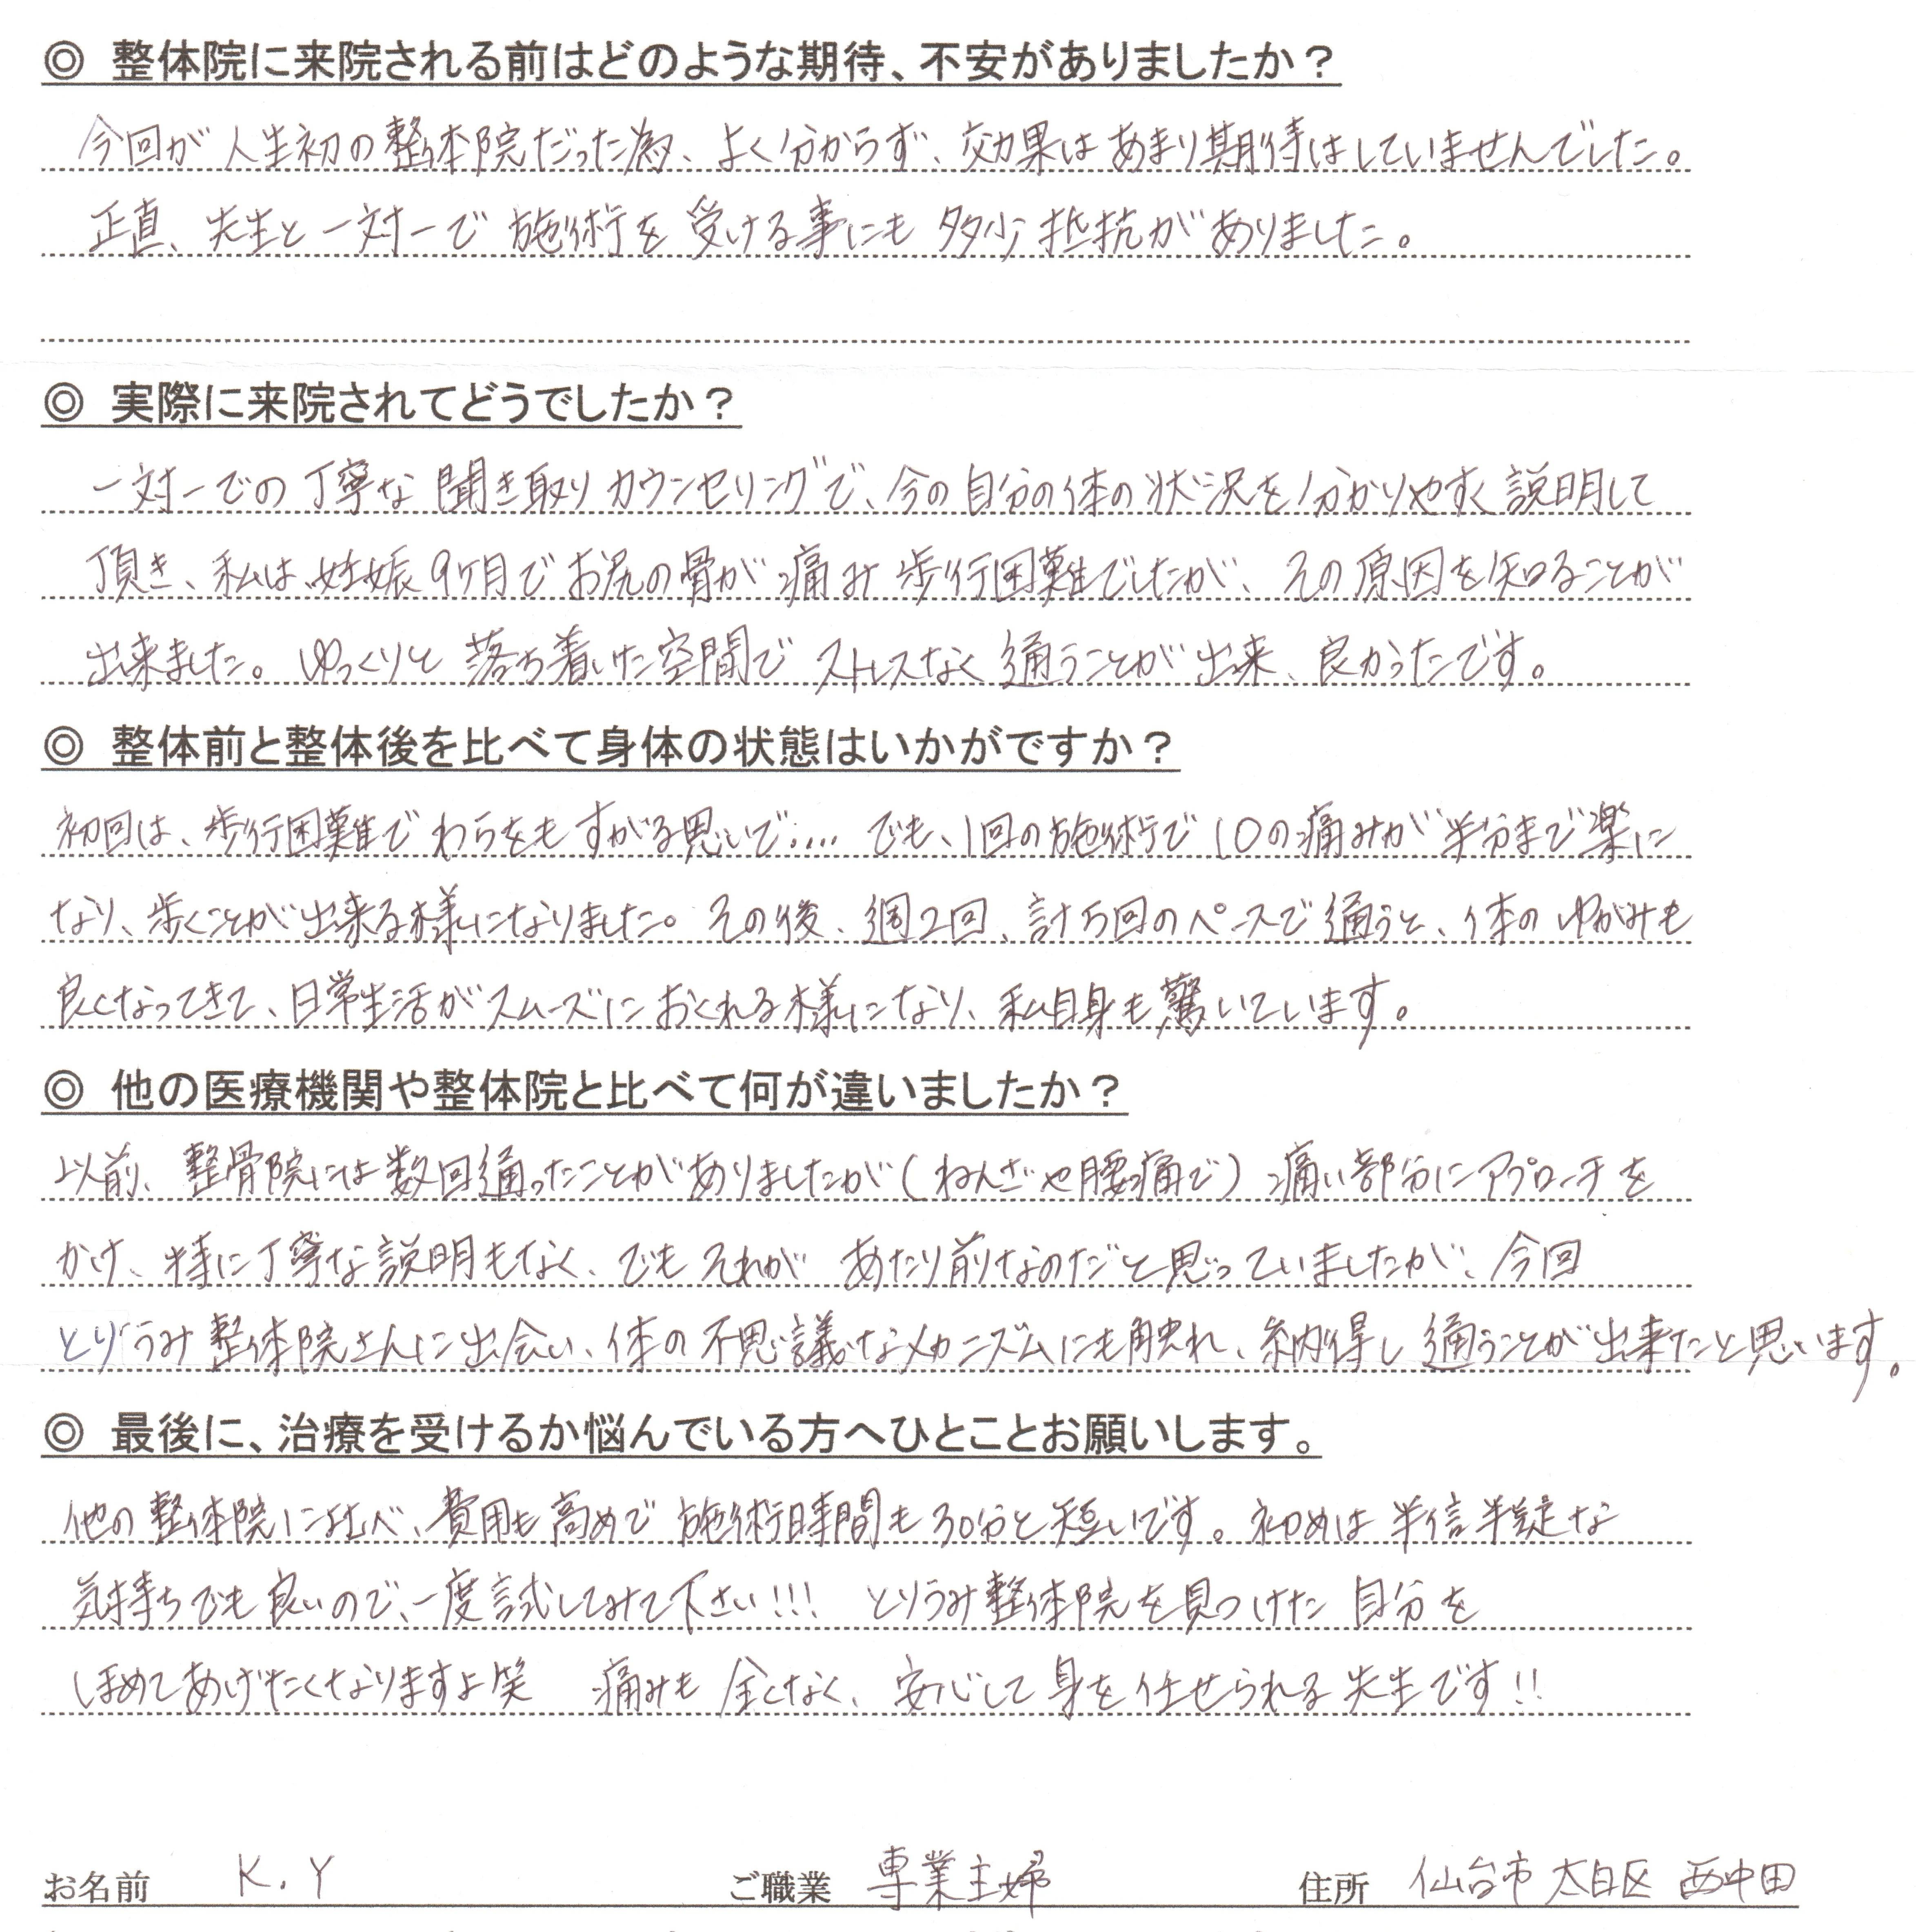 ◎ 整体院に来院される前はどのような期待、不安がありましたか？
今回が人生初の整体院だった為、よく分からず、効果はあまり期待はしていませんでした。
正直、先生と一対一で施術を受ける事にも多少抵抗がありました。
◎ 実際に来院されてどうでしたか？
一対一での丁寧な聞き取りカウンセリングで、今の自分の体の状況を分かりやすく説明して
頂き、私は、妊娠9ヶ月でお尻の骨が痛み歩行困難でしたが、その原因を知ることが
出来ました。ゆっくりと落ち着いた空間でストレスなく通うことが出来、良かったです。
◎ 整体前と整体後を比べて身体の状態はいかがですか？
初回は、歩行困難でわらをもすがる思いで…. でも、1回の施術で10の痛みが半分まで楽に
なり、歩くことが出来る様になりました。その後、週2回、計5回のペースで通うと、体のゆがみも
良くなってきて、日常生活がスムーズにおくれる様になり、私自身も驚いています。
◎ 他の医療機関や整体院と比べて何が違いましたか？
以前、整骨院には数回通ったことがありましたが(ねんざや腰痛で)痛い部分にアプローチを
かけ、特に丁寧な説明もなく、でもそれがあたり前なのだと思っていましたが、今回
とりうみ整体院さんに出会い、体の不思議なメカニズムにも触れ、納得し通うことが出来たと思います。
◎ 最後に、治療を受けるか悩んでいる方へひとことお願いします。
他の整体院に比べ、費用も高めで施術時間も30分と短いです。初めは半信半疑な
気持ちでも良いので、一度試してみて下さい!!! とりうみ整体院を見つけた自分を
ほめてあげたくなりますよ笑 痛みも全くなく、安心して身を任せられる先生です!!
お名前 K.Y ご職業 専業主婦 住所 仙台市太白区西中田